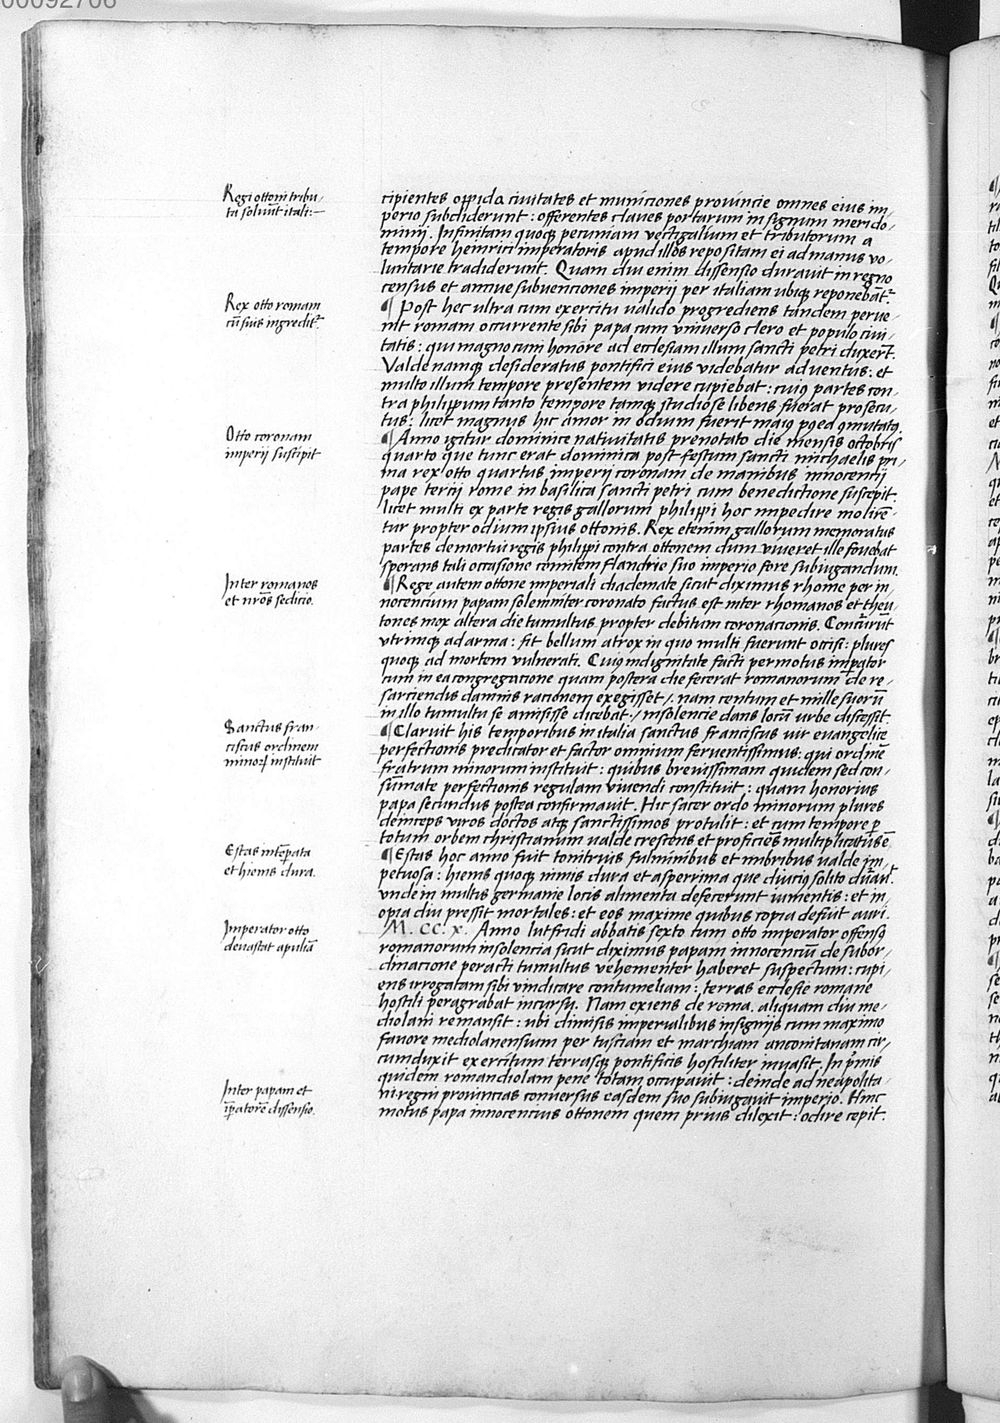 00092706
Regi ottoni tribu-
ta solvūt itali:—
cipientes oppida civitates et municiones provincie omnes eius im-
perio subdiderunt: offerentes claves portarum in signum meri do-
minij. Infinitam quoqꝫ pecuniam vectigalium et tributorum a
tempore heinrici imperatoris apud illos repositam ei ad manus vo-
luntarie tradiderunt. Quam diu enim dissensio duravit in regno
census et annue subvenciones imperij per italiam ubiqꝫ reponebāt᷑.
Rex otto romam
cū suis ingredit᷑
¶ Post hec ultra cum exercitu valido progrediens tandem perve-
nit romam occurrente sibi papa cum vniverso clero et populo civi-
tatis: qui magno cum honore ad ecclesiam illum sancti petri duxerūt.
Valde namqꝫ desideratus pontifici eius videbatur adventus: et
multo illum tempore presentem videre cupiebat: cuiꝯ partes con-
tra philippum tanto tempore tamqꝫ studiose libens fuerat prosecu-
tus: licet magnus hic amor in odium fuerit maiꝯ pꝯea ꝯmutatꝯ.
Otto coronam
imperij suscipit
¶ Anno igitur dominice nativitatis prenotato die mensis octobris
quarto que tunc erat dominica post festum sancti michaelis pri-
ma rex otto quartus imperij coronam de manibus innocencij
pape tercij rome in basilica sancti petri cum benedictione suscepit.
licet multi ex parte regis gallorum philippi hoc impedire moliren-
tur propter odium ipsius ottonis. Rex etenim gallorum memoratus
partes demortui regis philippi contra ottonem dum viveret ille fovebat
sperans tali occasione comitem flandrie suo imperio fore subiugandum.
Inter romanos
et nr̄os sedicio.
¶ Rege autem ottone imperiali diademate sicut diximus rhome per in-
nocencium papam solemniter coronato factus est inter rhomanos et theu-
tones mox altera die tumultus propter debitum coronacionis. Concurrūt
vtrimqꝫ ad arma: fit bellum atrox in quo multi fuerunt occisi: plures
quoqꝫ ad mortem vulnerati. Cuiꝯ indignitate facti permotus impator
cum in ea congregacione quam postera die fecerat romanorum de re-
sarciendis damnis racionem exegisset /. nam centum et mille suorū
in illo tumultu se amisisse dicebat./ insolencie dans locū urbe discessit.
Sanctus fran-
ciscus ordinem
minorꝝ instituit
¶ Claruit his temporibus in italia sanctus franciscus vir evangelice
perfectionis predicator et factor omnium ferventissimus: qui ordinē
fratrum minorum instituit: quibus brevissimam quidem sed con-
summate perfectionis regulam vivendi constituit: quam honorius
papa secundus postea confirmavit. Hic sacer ordo minorum plures
deinceps viros doctos atqꝫ sanctissimos protulit: et cum tempore ꝑ
totum orbem christianum valde crescens et proficiens multiplicatus ē
Estas intēpata
et hiems dura.
¶ Estas hoc anno fuit tonitruis fulminibus et imbribus valde im-
petuosa: hiems quoqꝫ nimis dura et asperrima que diuciꝯ solito durāt.
vnde in multis germanie locis alimenta defecerunt iumentis: et in-
opia diu pressit mortales: et eos maxime quibus copia defuit auri.
Imperator otto
devastat apuliā
M. CC. X. Anno lutfridi abbatis sexto tum otto imperator offensꝯ
romanorum insolencia sicut diximus papam innocenciū de subor-
dinacione peracti tumultus vehementer haberet suspectum: cupi-
ens irrogatam sibi vindicare contumeliam: terras ecclesie romane
hostili peragrabat incursu. Nam exiens de roma, aliquam diu me-
diolani remansit: ubi dimisis imperialibus insignijs cum maximo
favore mediolanensium per tusciam et marchiam anconitanam cir-
cumduxit exercitum terrasqꝫ pontificis hostiliter invasit. In pͥmis
quidem romandiolam pene totam occupavit: deinde ad neapolita-
ni regni provincias conversus easdem suo subiugavit imperio. Hinc
Inter papam et
īpatorē dissensio.
motus papa innocencius ottonem quem prius dilexit: odire cepit.